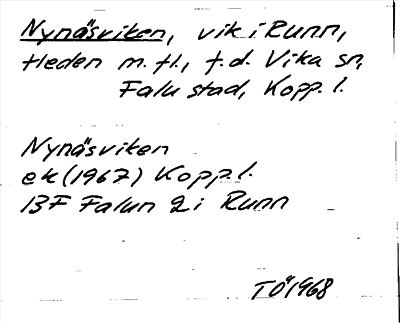 Nynäsviken, vik i Runn,
Heden m. fl., f. d. Vika sn,
Falu stad, Kopp. l.
Nynäsviken
ek (1967) Kopp. l.
13F Falun 2 i Runn
TÖ 1968